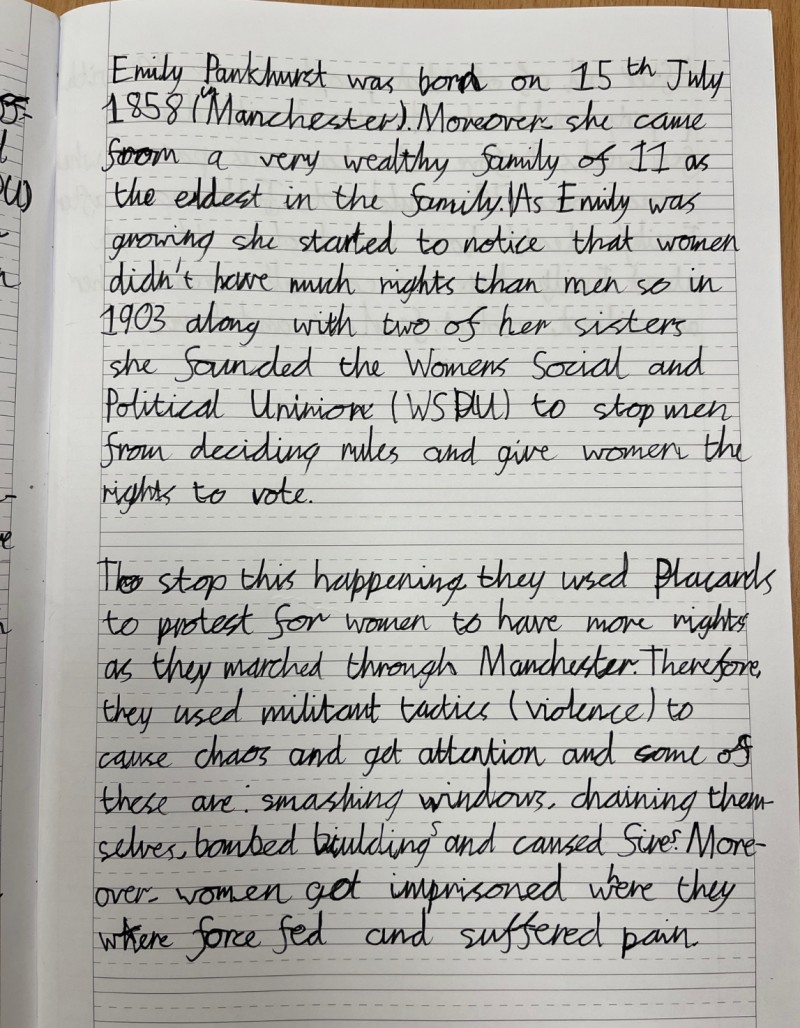 Emily Pankhurst was born on 15th July
1858 (Manchester). Moreover she came
from a very wealthy family of 11 as
the eldest in the family. As Emily was
growing she started to notice that women
didn't have much rights than men so in
1903 along with two of her sisters
she founded the Womens Social and
Political Uninion (WSPU) to stop men
from deciding rules and give women the
rights to vote.
To stop this happening they used Placards
to protest for women to have more rights
as they marched through Manchester. Therefore,
they used militant tactics (violence) to
cause chaos and get attention and some of
these are: smashing windows, chaining them-
selves, bombed biuldings and caused fires. More-
over, women got imprisoned were they
where force fed and suffered pain.